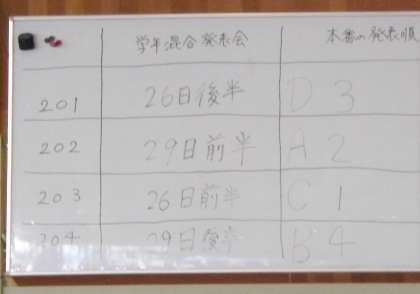 学年混合発表会 本番の発表順
201 26日後半 D 3
202 29日前半 A 2
203 26日前半 C 1
204 29日後半 B 4